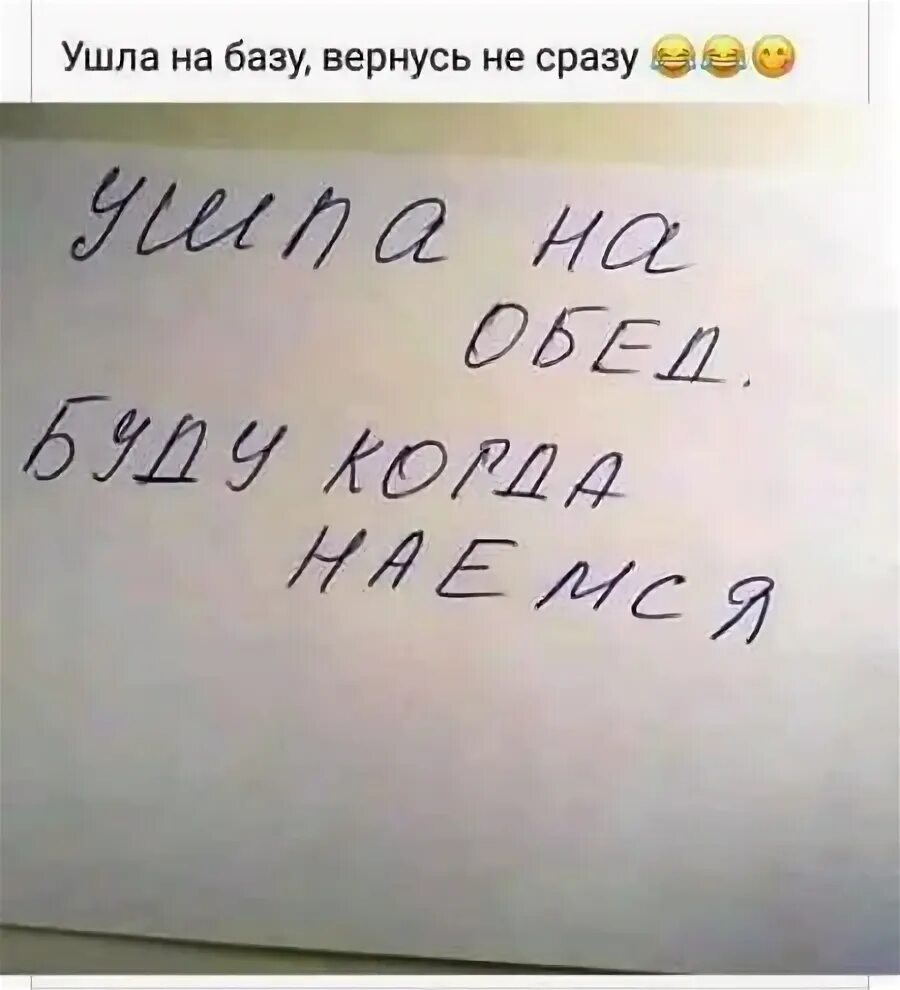 Ушла на базу, вернусь не сразу 😂😂😋
Ушла на
ОБЕД.
БУДУ КОГДА
НАЕМСЯ